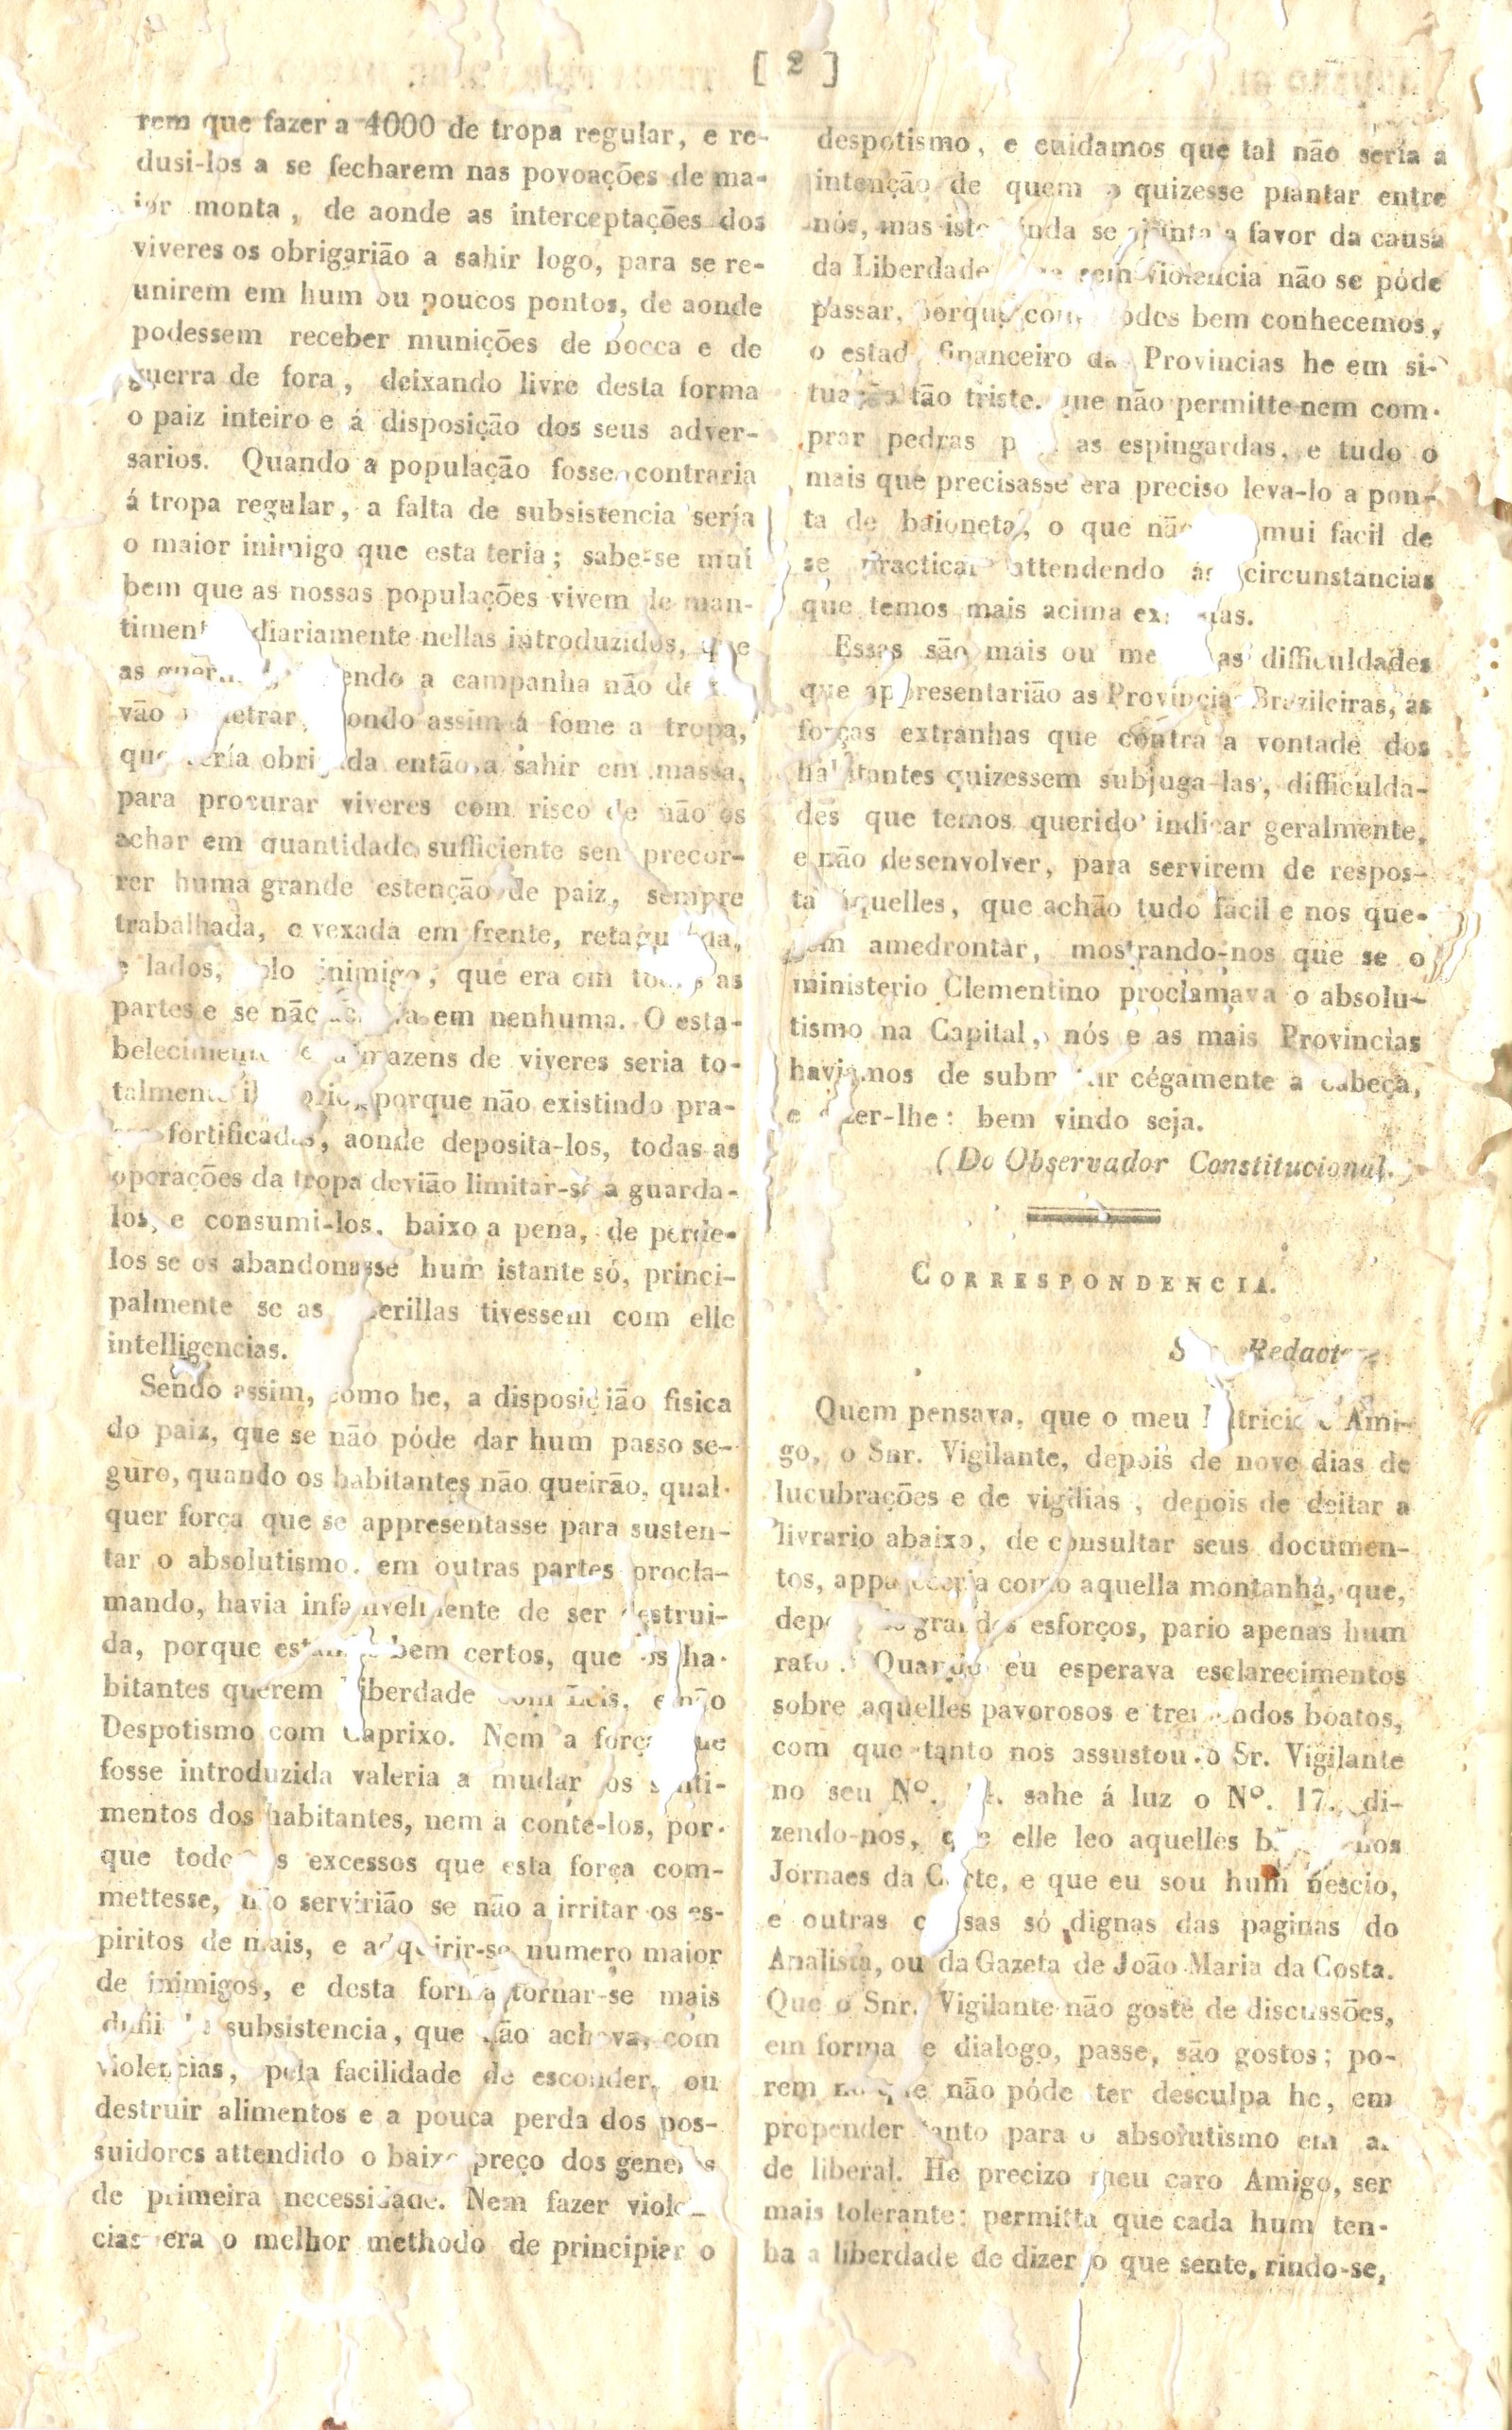 [ 2 ]
rem que fazer a 4000 de tropa regular, e re-
dusi-los a se fecharem nas povoações de ma-
ior monta, de aonde as interceptações dos
viveres os obrigarião a sahir logo, para se re-
unirem em hum ou poucos pontos, de aonde
podessem receber munições de bocca e de
guerra de fora, deixando livre desta forma
o paiz inteiro e á disposição dos seus adver-
sarios. Quando a população fosse contraria
á tropa regular, a falta de subsistencia sería
o maior inimigo que esta teria; sabe-se mui
bem que as nossas populações vivem de man-
diariamente nellas introduzidos, que
as a campanha não
vão assim á fome a tropa,
que sería obrigada então a sahir em massa,
para procurar viveres com risco de não os
achar em quantidade sufficiente sem precor-
rer huma grande estenção de paiz, sempre
trabalhada, e vexada em frente, retaguarda,
e lados, pelo inimigo, que era em todas as
partes e se não em nenhuma. O esta-
belecimento de armazens de viveres seria to-
talmente porque não existindo pra-
ças fortificadas, aonde deposita-los, todas as
operações da tropa devião limitar-se a guarda-
los, e consumi-los, baixo a pena, de perde-
los se os abandonasse hum istante só, princi-
palmente se as guerillas tivessem com elle
intelligencias.
Sendo assim, como he, a disposição fisica
do paiz, que se não póde dar hum passo se-
guro, quando os habitantes não queirão, qual-
quer força que se appresentasse para susten-
tar o absolutismo, em outras partes procla-
mando, havia infalivelmente de ser destrui-
da, porque estamos bem certos, que os ha-
bitantes querem Liberdade com Leis, e não
Despotismo com Caprixo. Nem a força que
fosse introduzida valeria a mudar os senti-
mentos dos habitantes, nem a conte-los, por-
que todos os excessos que esta força com-
mettesse, não servirião se não a irritar os es-
piritos de mais, e adquirir-se numero maior
de inimigos, e desta forma tornar-se mais
difficil a subsistencia, que não achava, com
violencias, pela facilidade de esconder, ou
destruir alimentos e a pouca perda dos pos-
suidores attendido o baixo preço dos generos
de primeira necessidade. Nem fazer violen-
cias era o melhor methodo de principiar o
despotismo, e cuidamos que tal não sería a
intenção de quem o quizesse plantar entre
nós, mas isto ainda se ajunta a favor da causa
da Liberdade que sem violencia não se póde
passar, porque como todos bem conhecemos,
o estado financeiro das Provincias he em si-
tuação tão triste, que não permitte nem com-
prar pedras para as espingardas, e tudo o
mais que precisasse era preciso leva-lo a pon-
ta de baioneta, o que não mui facil de
se practicar attendendo as circunstancias
que temos mais acima
Essas são mais ou menos as difficuldades
que appresentarião as Provincias Brazileiras, ás
forças extranhas que contra a vontade dos
habitantes quizessem subjuga-las, difficulda-
des que temos querido indicar geralmente,
e não desenvolver, para servirem de respos-
ta áquelles, que achão tudo facil e nos que-
rem amedrontar, mostrando-nos que se o
ministerio Clementino proclamava o absolu-
tismo na Capital, nós e as mais Provincias
haviamos de submetter cégamente a cabeça,
e dizer-lhe: bem vindo seja.
(Do Observador Constitucional.)
CORRESPONDENCIA.
Redactor
Quem pensava, que o meu Patricio e Ami-
go, o Snr. Vigilante, depois de nove dias de
lucubrações e de vigilias, depois de deitar a
livrario abaixo, de consultar seus documen-
tos, appareceria como aquella montanha, que,
depois de grandes esforços, pario apenas hum
rato. Quando eu esperava esclarecimentos
sobre aquelles pavorosos e tremendos boatos,
com que tanto nos assustou o Sr. Vigilante
no seu Nº. sahe á luz o Nº. 17. di-
zendo-nos, que elle leo aquelles boatos nos
Jornaes da Corte, e que eu sou hum nescio,
e outras cousas só dignas das paginas do
Analista, ou da Gazeta de João Maria da Costa.
Que o Snr. Vigilante não goste de discussões,
em forma de dialogo, passe, são gostos; po-
rem no que não póde ter desculpa he, em
propender tanto para o absolutismo em ar
de liberal. He precizo meu caro Amigo, ser
mais tolerante: permitta que cada hum ten-
ha a liberdade de dizer o que sente, rindo-se,